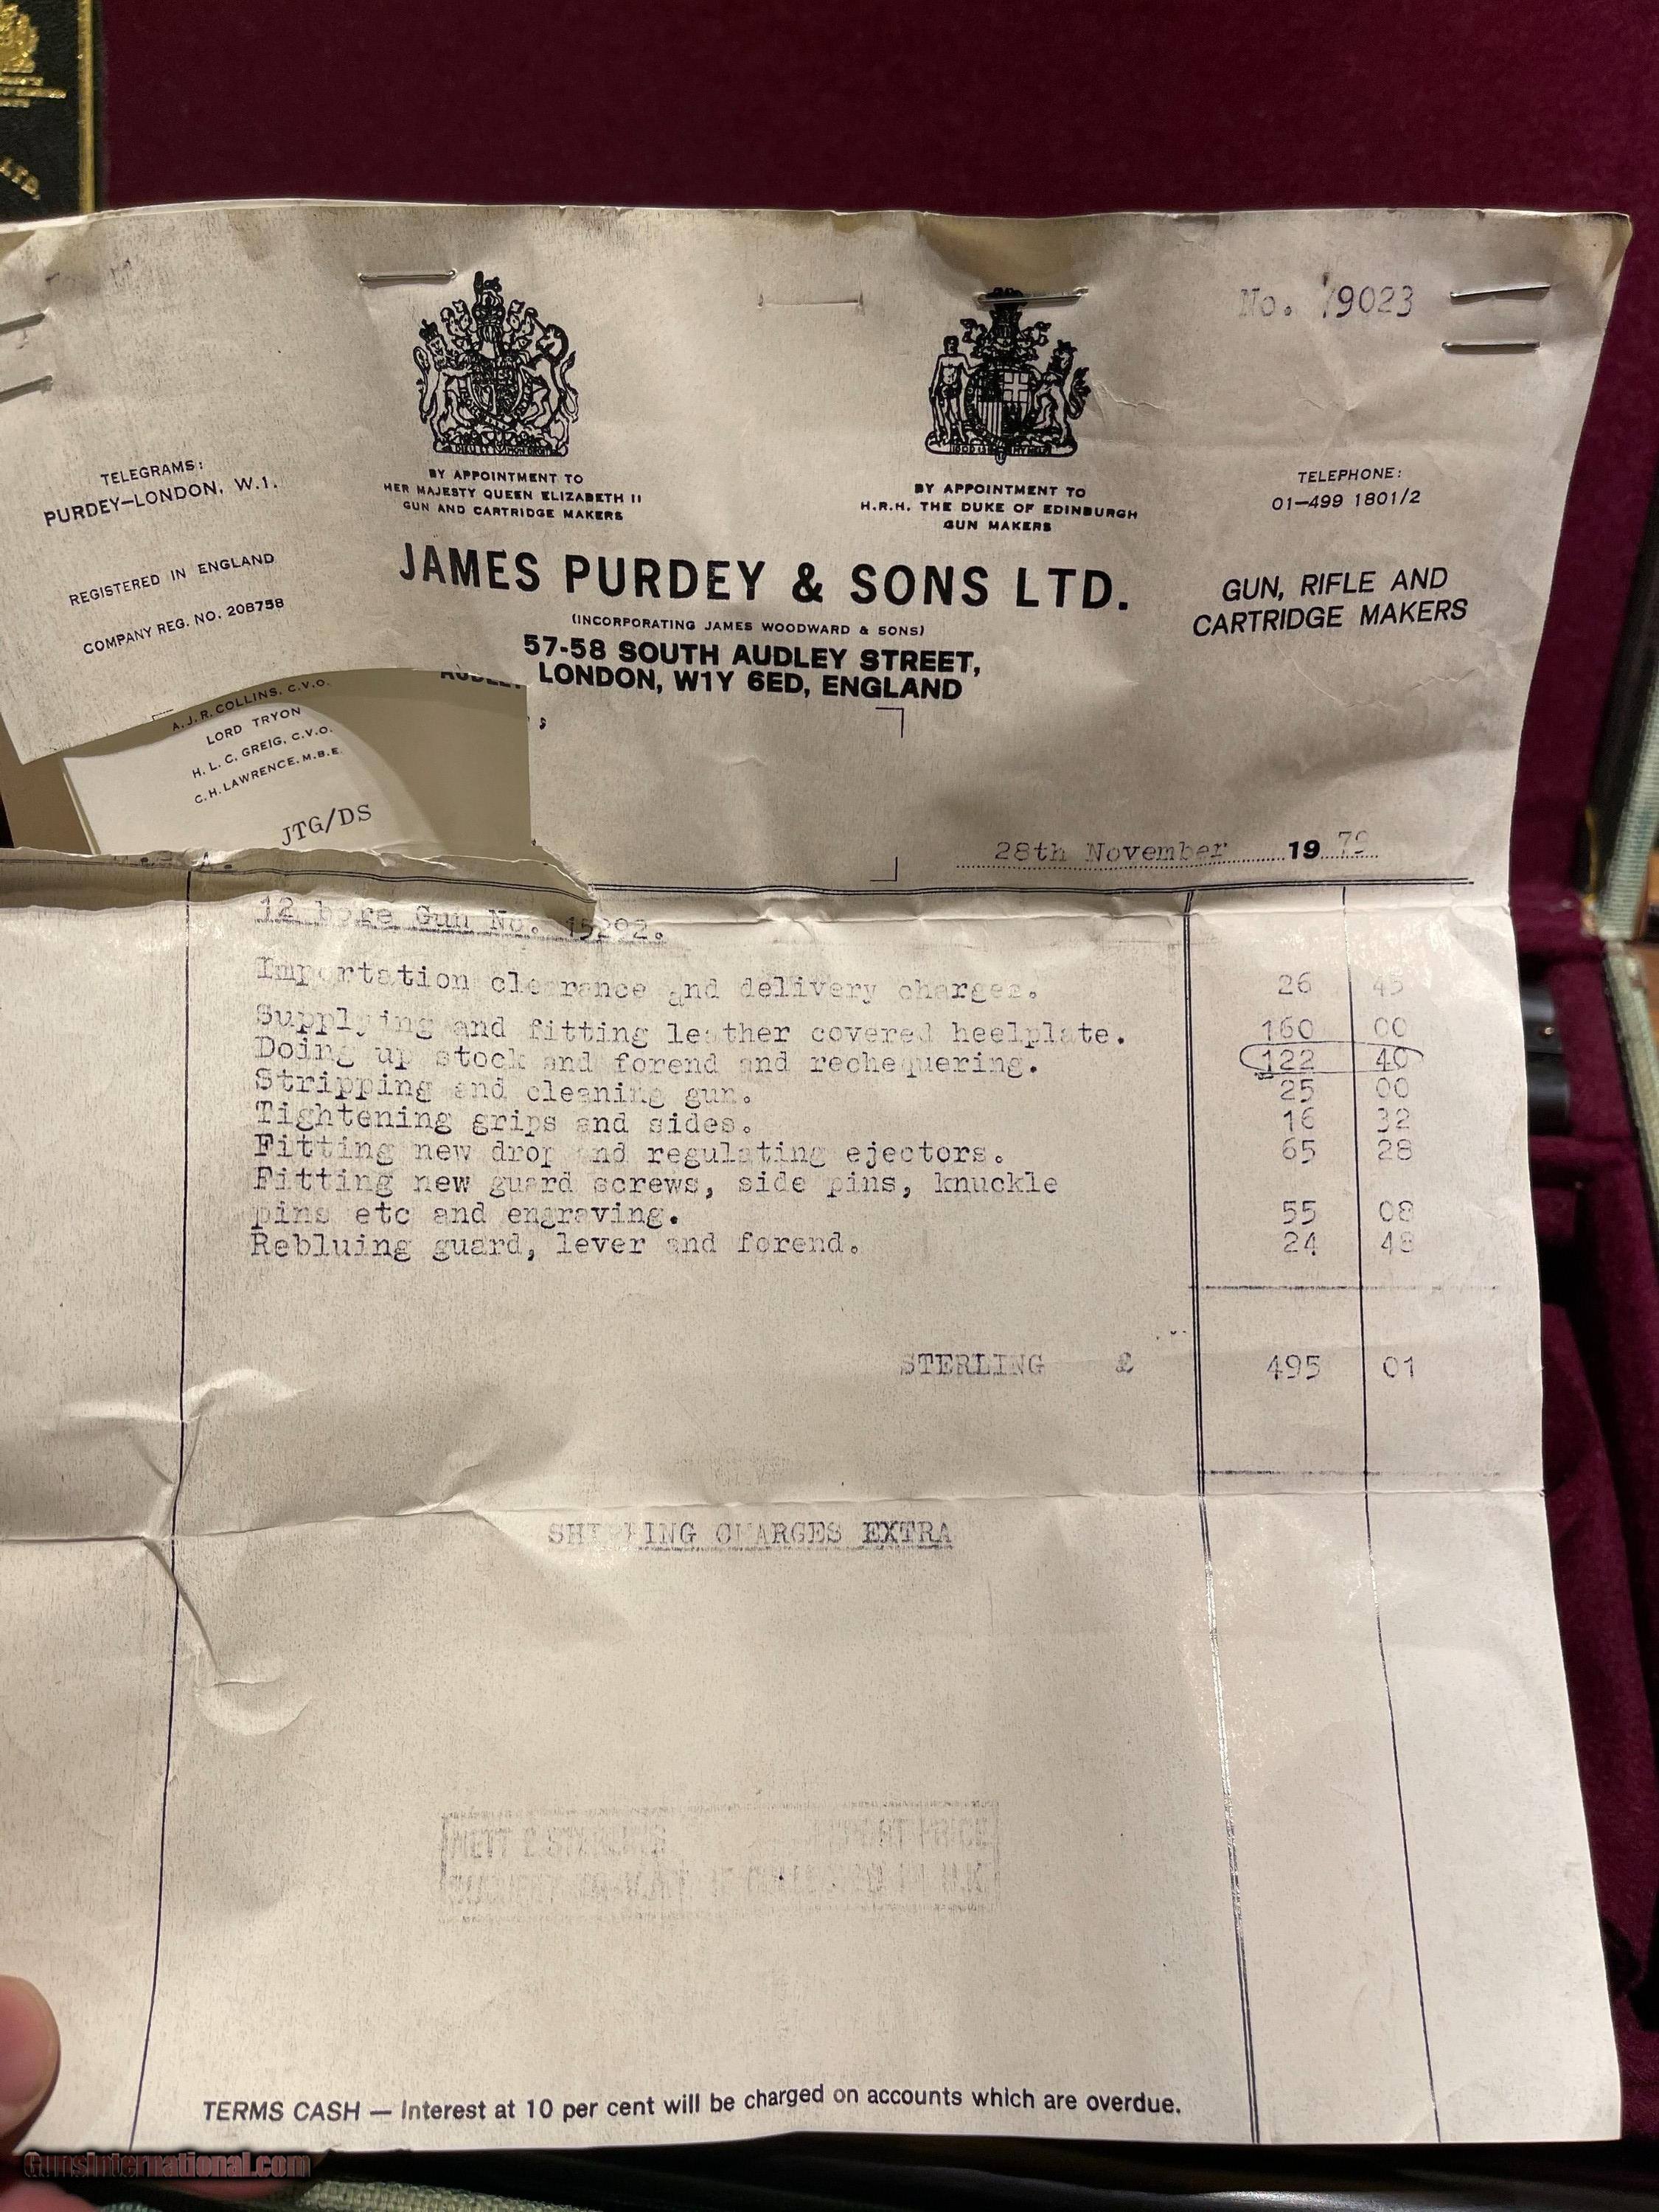 LTD.
No. 79023
TELEGRAMS:
PURDEY—LONDON, W.1.
REGISTERED IN ENGLAND
COMPANY REG. NO. 208758
BY APPOINTMENT TO
HER MAJESTY QUEEN ELIZABETH II
GUN AND CARTRIDGE MAKERS
BY APPOINTMENT TO
H.R.H. THE DUKE OF EDINBURGH
GUN MAKERS
TELEPHONE:
01—499 1801/2
JAMES PURDEY & SONS LTD.
(INCORPORATING JAMES WOODWARD & SONS)
57-58 SOUTH AUDLEY STREET,
LONDON, W1Y 6ED, ENGLAND
GUN, RIFLE AND
CARTRIDGE MAKERS
A. J. R. COLLINS, C.V.O.
LORD TRYON
H. L. C. GREIG, C.V.O.
C. H. LAWRENCE, M.B.E.
JTG/DS
28th November 19
12 bore Gun No. 15292.
Importation clearance and delivery charges. 26 45
Supplying and fitting leather covered heelplate. 160 00
Doing up stock and forend and rechequering. 122 40
Stripping and cleaning gun. 25 00
Tightening grips and sides. 16 32
Fitting new drop and regulating ejectors. 65 28
Fitting new guard screws, side pins, knuckle
pins etc and engraving. 55 08
Rebluing guard, lever and forend. 24 48
STERLING £ 495 01
SHIPPING CHARGES EXTRA
TERMS CASH — Interest at 10 per cent will be charged on accounts which are overdue.
GunsInternational.com